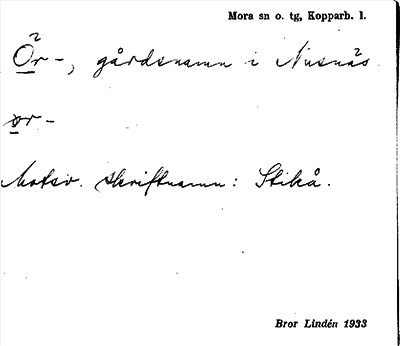 Mora sn o. tg, Kopparb. l.
Ör-, gårdsnamn i Nusnäs
ør-
Motsv. skriftnamn: Stikå.
Bror Lindén 1933